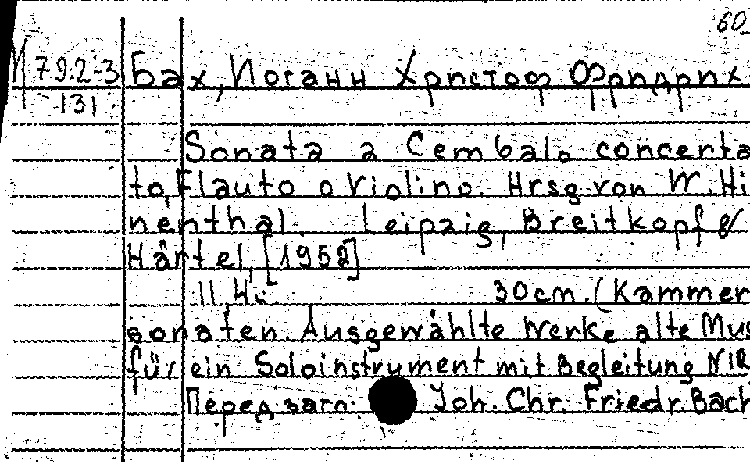 60
М 79.2-3 Бах, Иоганн Христоф Фридрих
131
Sonata a Cembalo concerta
to, Flauto o Violino. Hrsg. von W. Hi
nenthal. Leipzig, Breitkopf &
Härtel, [1952]
30 cm. (Kammer
sonaten. Ausgewählte Werke alte Mus
für ein Soloinstrument mit Begleitung N12
Перед загл. Joh. Chr. Friedr. Bach